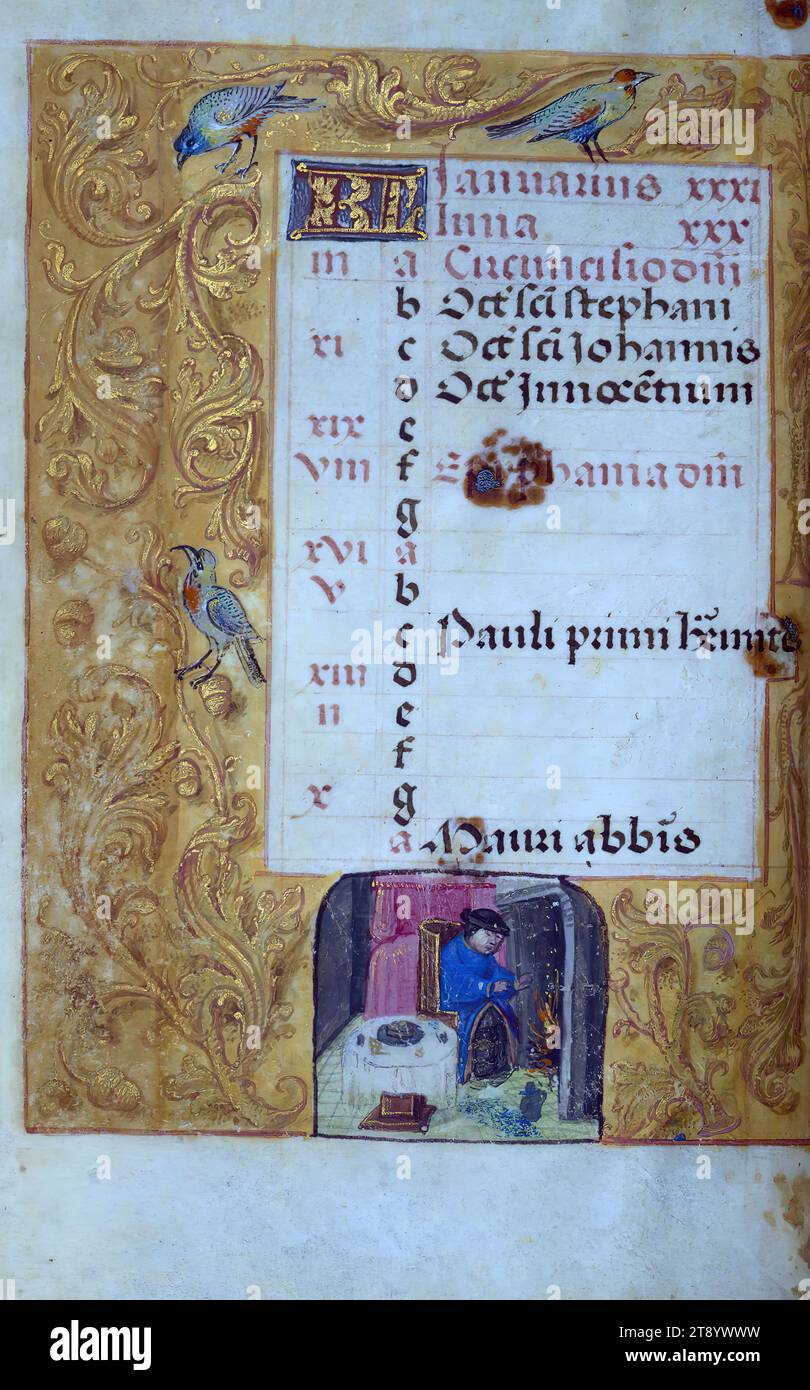 KL Januarius xxxi
luna xxx
iii a Circuncisio dñi
b Oct̃ sc̃i stephani
xi c Oct̃ sc̃i Johannis
d Oct̃ Innocẽtium
xix e
viii f dñi
g
xvi a
v b
c Pauli primi
xiii d
ii e
f
x g
a Mauri abb̃is
alamy
Image ID: 2T81YWW
www.alamy.com